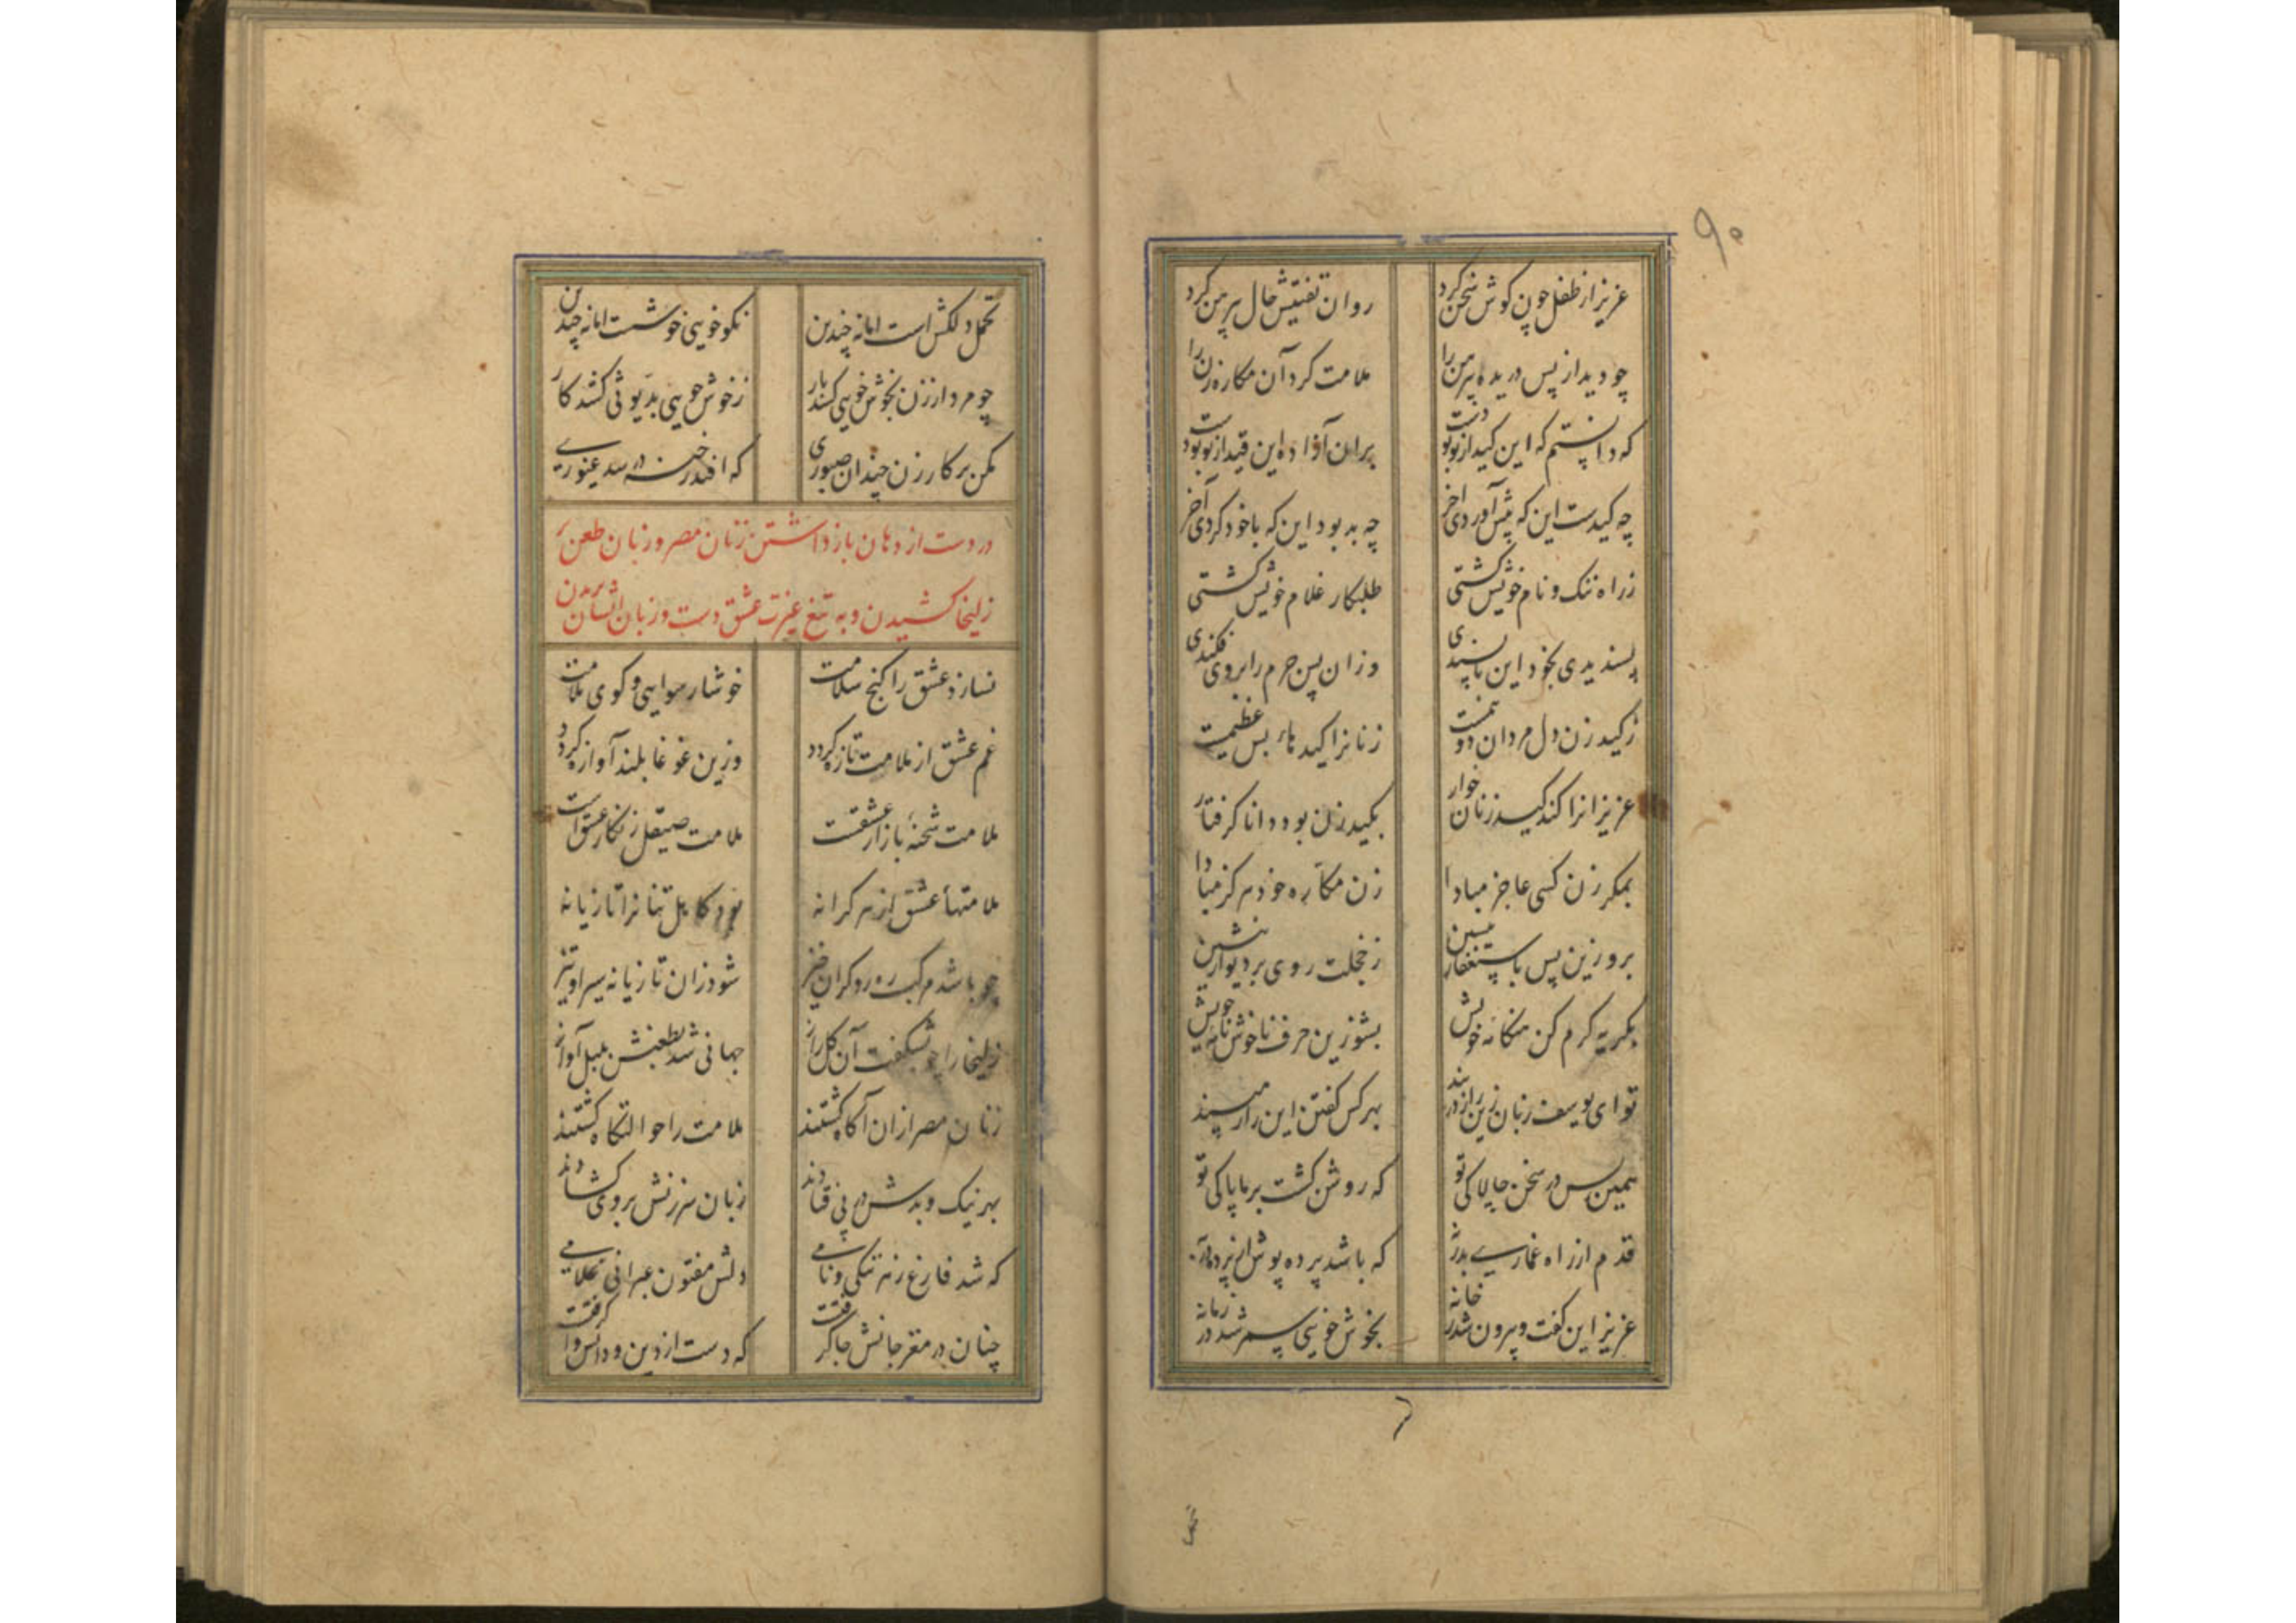 ۹۰
عزیز از طفل چون گوش سخن کرد روان تفتیش حال پیرهن کرد
چو دید از پس دریده پیرهن را ملامت کرد آن مکاره زن را
که دانستم که این کید از تو بودست بران آزاده این قید از تو بودست
چه کیدست این که پیش آوردی آخر چه بد بود این که با خود کردی آخر
ز راه ننک و نام خویش کشتی طلبکار غلام خویش کشتی
پسندیدی بخود این ناپسندی وزان پس جرم را بروی فکندی
ز کید زن دل مردان دو نیمست زنانرا کیدهاء بس عظیمست
عزیزانرا کند کید زنان خوار بکید زن بود دانا کرفتار
بمکر زن کسی عاجز مبادا زن مکاره خود هرکز مبادا
برو زین پس باستغفار بنشین ز خجلت روی بر دیوار بنشین
بکریه کرم کن هنکامه خویش بشو زین حرف ناخوش نامه خویش
تو ای یوسف زبان زین راز دربند بهر کس کفتن این راز مپسند
همین بس در سخن چالاکی تو که روشن کشت بر ما پاکی تو
قدم از راه غمازی بدر نه که باشد پرده پوش از پرده در به
عزیز این کفت و بیرون شد ز خانه بخوش خویی سمر شد در زمانه
تحمل
تحمل دلکش است اما نه چندین نکو خویی خوشست اما نه چندین
چو مرد از زن بخوش خویی کشد بار ز خوش خویی بدیوثی کشد کار
مکن بر کار زن چندان صبوری که افتد رخنه در سد غیوری
در دست از دهان باز داشتن زنان مصر و زبان طعن بر
زلیخا کشیدن و به تیغ غیرت عشق دست و زبان ایشان بریدن
نسازد عشق را کنج سلامت خوشا رسوایی و کوی ملامت
غم عشق از ملامت تازه کردد وزین غوغا بلند آوازه کردد
ملامت شحنهٔ بازار عشقست ملامت صیقل زنکار عشق است
ملامتهأ عشق از هر کرانه بود کاهل تنانرا تازیانه
چو باشد مرکب ره رو کران خیز شود زان تازیانه سیر او تیز
زلیخا را چو بشکفت آن کل راز جهانی شد بطعنش بلبل آواز
زنان مصر ازان آکاه کشتند ملامت را حوالتکاه کشتند
بهر نیک و بدش در پی فتادند زبان سرزنش بروی کشادند
که شد فارغ ز هر ننکی و نامی دلش مفتون عبرانی غلامی
چنان در مغز جانش جا کرفتست که دست از دین و دانش وا کرفتست